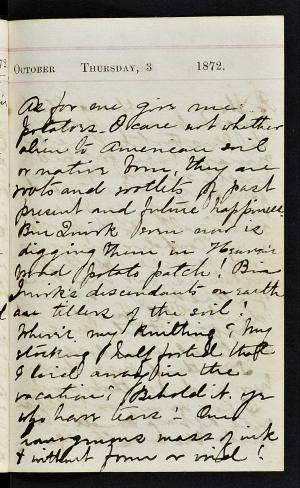 OCTOBER THURSDAY, 3 1872.
As for me give me
potatoes. I care not whether
alien to American soil
or native born, they are
roots and rootlets of past
present and future happiness.
Quirk even now is
digging them in
potato patch!
Quirk's descendants on earth
are tillers of the soil!
Where's my knitting? My
stocking half footed that
I laid away in the
vacation? Behold it. ye
who have tears! One
mass of ink
& without form or void!